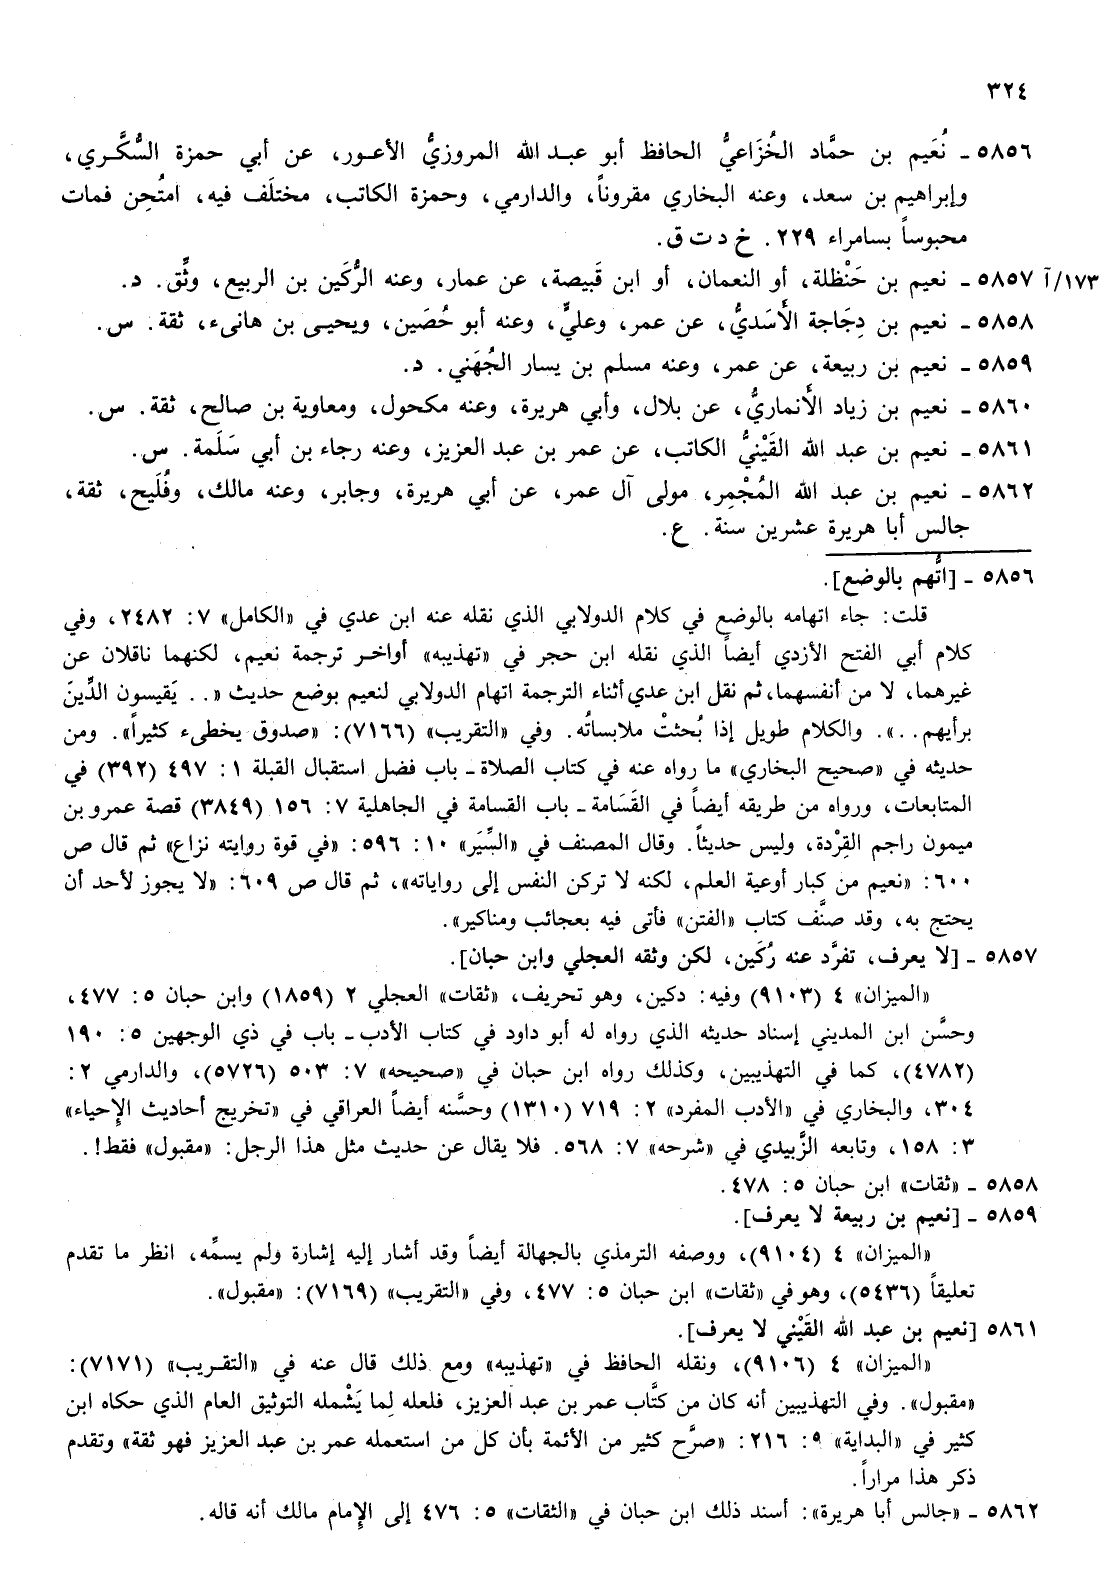 ٣٢٤
٥٨٥٦ ـ نُعَيم بن حمَّاد الخُزَاعيُّ الحافظ أبو عبد الله المروزيُّ الأعور، عن أبي حمزة السُّكَّري،
وإبراهيم بن سعد، وعنه البخاري مقروناً، والدارمي، وحمزة الكاتب، مختلَف فيه، امتُحِن فمات
محبوساً بسامراء ٢٢٩. خ د ت ق.
١٧٣/آ ٥٨٥٧ ـ نعيم بن حَنْظلة، أو النعمان، أو ابن قَبيصة، عن عمار، وعنه الرُّكَين بن الربيع، وثِّق. د.
٥٨٥٨ ـ نعيم بن دِجَاجة الأَسَديُّ، عن عمر، وعليٍّ، وعنه أبو حُصَين، ويحيى بن هانىء، ثقة. س.
٥٨٥٩ ـ نعيم بن ربيعة، عن عمر، وعنه مسلم بن يسار الجُهَني. د.
٥٨٦٠ ـ نعيم بن زياد الأَنماريُّ، عن بلال، وأبي هريرة، وعنه مكحول، ومعاوية بن صالح، ثقة. س.
٥٨٦١ ـ نعيم بن عبد الله القَيْنيُّ الكاتب، عن عمر بن عبد العزيز، وعنه رجاء بن أبي سَلَمة. س.
٥٨٦٢ ـ نعيم بن عبد الله المُجْمِر، مولى آل عمر، عن أبي هريرة، وجابر، وعنه مالك، وفُلَيح، ثقة،
جالس أبا هريرة عشرين سنة. ع.
٥٨٥٦ ـ [اتُّهم بالوضع].
قلت: جاء اتهامه بالوضع في كلام الدولابي الذي نقله عنه ابن عدي في «الكامل» ٧: ٢٤٨٢، وفي
كلام أبي الفتح الأزدي أيضاً الذي نقله ابن حجر في «تهذيبه» أواخر ترجمة نعيم، لكنهما ناقلان عن
غيرهما، لا من أنفسهما، ثم نقل ابن عدي أثناء الترجمة اتهام الدولابي لنعيم بوضع حديث «.. يَقيسون الدِّينَ
برأيهم..». والكلام طويل إذا بُحثتْ ملابساتُه. وفي «التقريب» (٧١٦٦): «صدوق يخطىء كثيراً». ومن
حديثه في «صحيح البخاري» ما رواه عنه في كتاب الصلاة ـ باب فضل استقبال القبلة ١: ٤٩٧ (٣٩٢) في
المتابعات، ورواه من طريقه أيضاً في القَسَامة ـ باب القسامة في الجاهلية ٧: ١٥٦ (٣٨٤٩) قصة عمرو بن
ميمون راجم القِرْدة، وليس حديثاً. وقال المصنف في «السِّيَر» ١٠: ٥٩٦: «في قوة روايته نزاع» ثم قال ص
٦٠٠: «نعيم من كبار أوعية العلم، لكنه لا تركن النفس إلى رواياته»، ثم قال ص ٦٠٩: «لا يجوز لأحد أن
يحتج به، وقد صنَّف كتاب «الفتن» فأتى فيه بعجائب ومناكير».
٥٨٥٧ ـ [لا يعرف، تفرَّد عنه رُكَين، لكن وثقه العجلي وابن حبان].
«الميزان» ٤ (٩١٠٣) وفيه: دكين، وهو تحريف، «ثقات» العجلي ٢ (١٨٥٩) وابن حبان ٥: ٤٧٧،
وحسَّن ابن المديني إسناد حديثه الذي رواه له أبو داود في كتاب الأدب ـ باب في ذي الوجهين ٥: ١٩٠
(٤٧٨٢)، كما في التهذيبين، وكذلك رواه ابن حبان في «صحيحه» ٧: ٥٠٣ (٥٧٢٦)، والدارمي ٢:
٣٠٤، والبخاري في «الأدب المفرد» ٢: ٧١٩ (١٣١٠) وحسَّنه أيضاً العراقي في «تخريج أحاديث الإحياء»
٣: ١٥٨، وتابعه الزَّبيدي في «شرحه» ٧: ٥٦٨. فلا يقال عن حديث مثل هذا الرجل: «مقبول» فقط!.
٥٨٥٨ ـ «ثقات» ابن حبان ٥: ٤٧٨.
٥٨٥٩ ـ [نعيم بن ربيعة لا يعرف].
«الميزان» ٤ (٩١٠٤)، ووصفه الترمذي بالجهالة أيضاً وقد أشار إليه إشارة ولم يسمِّه، انظر ما تقدم
تعليقاً (٥٤٣٦)، وهو في «ثقات» ابن حبان ٥: ٤٧٧، وفي «التقريب» (٧١٦٩): «مقبول».
٥٨٦١ [نعيم بن عبد الله القَيْني لا يعرف].
«الميزان» ٤ (٩١٠٦)، ونقله الحافظ في «تهذيبه» ومع ذلك قال عنه في «التقريب» (٧١٧١):
«مقبول». وفي التهذيبين أنه كان من كتَّاب عمر بن عبد العزيز، فلعله لِما يَشْمله التوثيق العام الذي حكاه ابن
كثير في «البداية» ٩: ٢١٦: «صرَّح كثير من الأئمة بأن كل من استعمله عمر بن عبد العزيز فهو ثقة» وتقدم
ذكر هذا مراراً.
٥٨٦٢ ـ «جالس أبا هريرة»: أسند ذلك ابن حبان في «الثقات» ٥: ٤٧٦ إلى الإمام مالك أنه قاله.